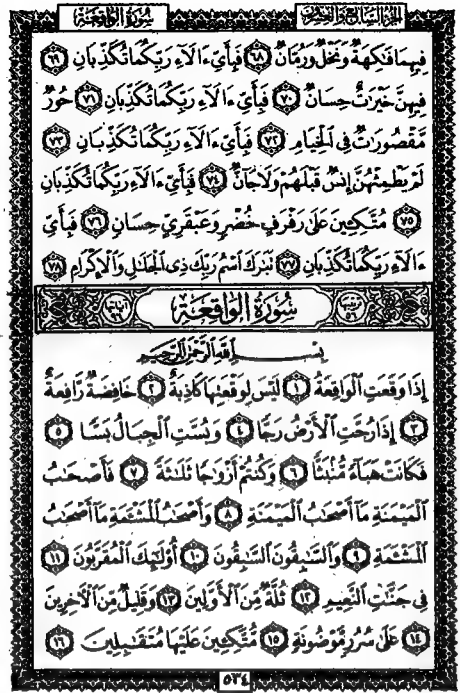 سُورَةُ الوَاقِعَةِ الجُزْءُ السَّابِعُ وَالعِشْرُونَ
فِيهِمَا فَٰكِهَةٌ وَنَخْلٌ وَرُمَّانٌ ٦٨ فَبِأَيِّ ءَالَآءِ رَبِّكُمَا تُكَذِّبَانِ ٦٩
فِيهِنَّ خَيْرَٰتٌ حِسَانٌ ٧٠ فَبِأَيِّ ءَالَآءِ رَبِّكُمَا تُكَذِّبَانِ ٧١ حُورٌ
مَّقْصُورَٰتٌ فِي الْخِيَامِ ٧٢ فَبِأَيِّ ءَالَآءِ رَبِّكُمَا تُكَذِّبَانِ ٧٣
لَمْ يَطْمِثْهُنَّ إِنسٌ قَبْلَهُمْ وَلَا جَآنٌّ ٧٤ فَبِأَيِّ ءَالَآءِ رَبِّكُمَا تُكَذِّبَانِ
٧٥ مُتَّكِـِٔينَ عَلَىٰ رَفْرَفٍ خُضْرٍ وَعَبْقَرِيٍّ حِسَانٍ ٧٦ فَبِأَيِّ
ءَالَآءِ رَبِّكُمَا تُكَذِّبَانِ ٧٧ تَبَٰرَكَ اسْمُ رَبِّكَ ذِي الْجَلَٰلِ وَالْإِكْرَامِ ٧٨
سُورَةُ الوَاقِعَةِ
بِسْمِ اللَّهِ الرَّحْمَٰنِ الرَّحِيمِ
إِذَا وَقَعَتِ الْوَاقِعَةُ ١ لَيْسَ لِوَقْعَتِهَا كَاذِبَةٌ ٢ خَافِضَةٌ رَّافِعَةٌ
٣ إِذَا رُجَّتِ الْأَرْضُ رَجًّا ٤ وَبُسَّتِ الْجِبَالُ بَسًّا ٥
فَكَانَتْ هَبَآءً مُّنۢبَثًّا ٦ وَكُنتُمْ أَزْوَٰجًا ثَلَٰثَةً ٧ فَأَصْحَٰبُ
الْمَيْمَنَةِ مَآ أَصْحَٰبُ الْمَيْمَنَةِ ٨ وَأَصْحَٰبُ الْمَشْـَٔمَةِ مَآ أَصْحَٰبُ
الْمَشْـَٔمَةِ ٩ وَالسَّٰبِقُونَ السَّٰبِقُونَ ١٠ أُو۟لَٰٓئِكَ الْمُقَرَّبُونَ ١١
فِي جَنَّٰتِ النَّعِيمِ ١٢ ثُلَّةٌ مِّنَ الْأَوَّلِينَ ١٣ وَقَلِيلٌ مِّنَ الْآخِرِينَ
١٤ عَلَىٰ سُرُرٍ مَّوْضُونَةٍ ١٥ مُّتَّكِـِٔينَ عَلَيْهَا مُتَقَٰبِلِينَ ١٦
٥٣٤